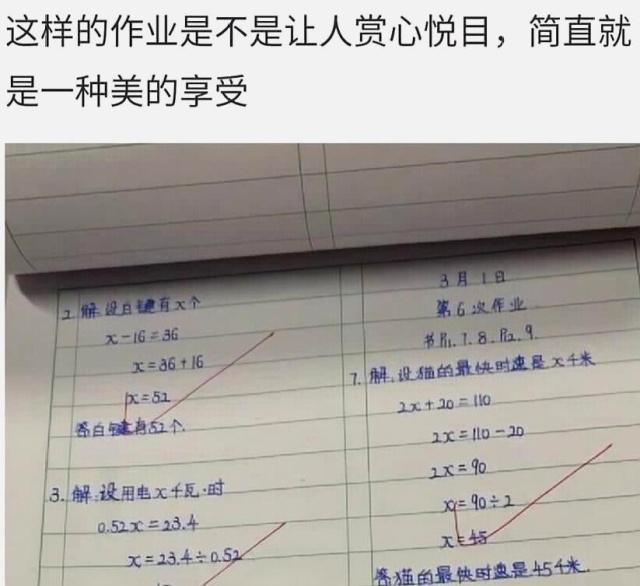 这样的作业是不是让人赏心悦目，简直就
是一种美的享受
2.解.设白键有x个
x-16=36
x=36+16
x=52
答白键有52个.
3.解.设用电x千瓦·时
0.52x=23.4
x=23.4÷0.52
3月1日
第6次作业
书P11.7.8.P12.9.
7.解.设猫的最快时速是x千米
2x+20=110
2x=110-20
2x=90
x=90÷2
x=45
答猫的最快时速是45千米.